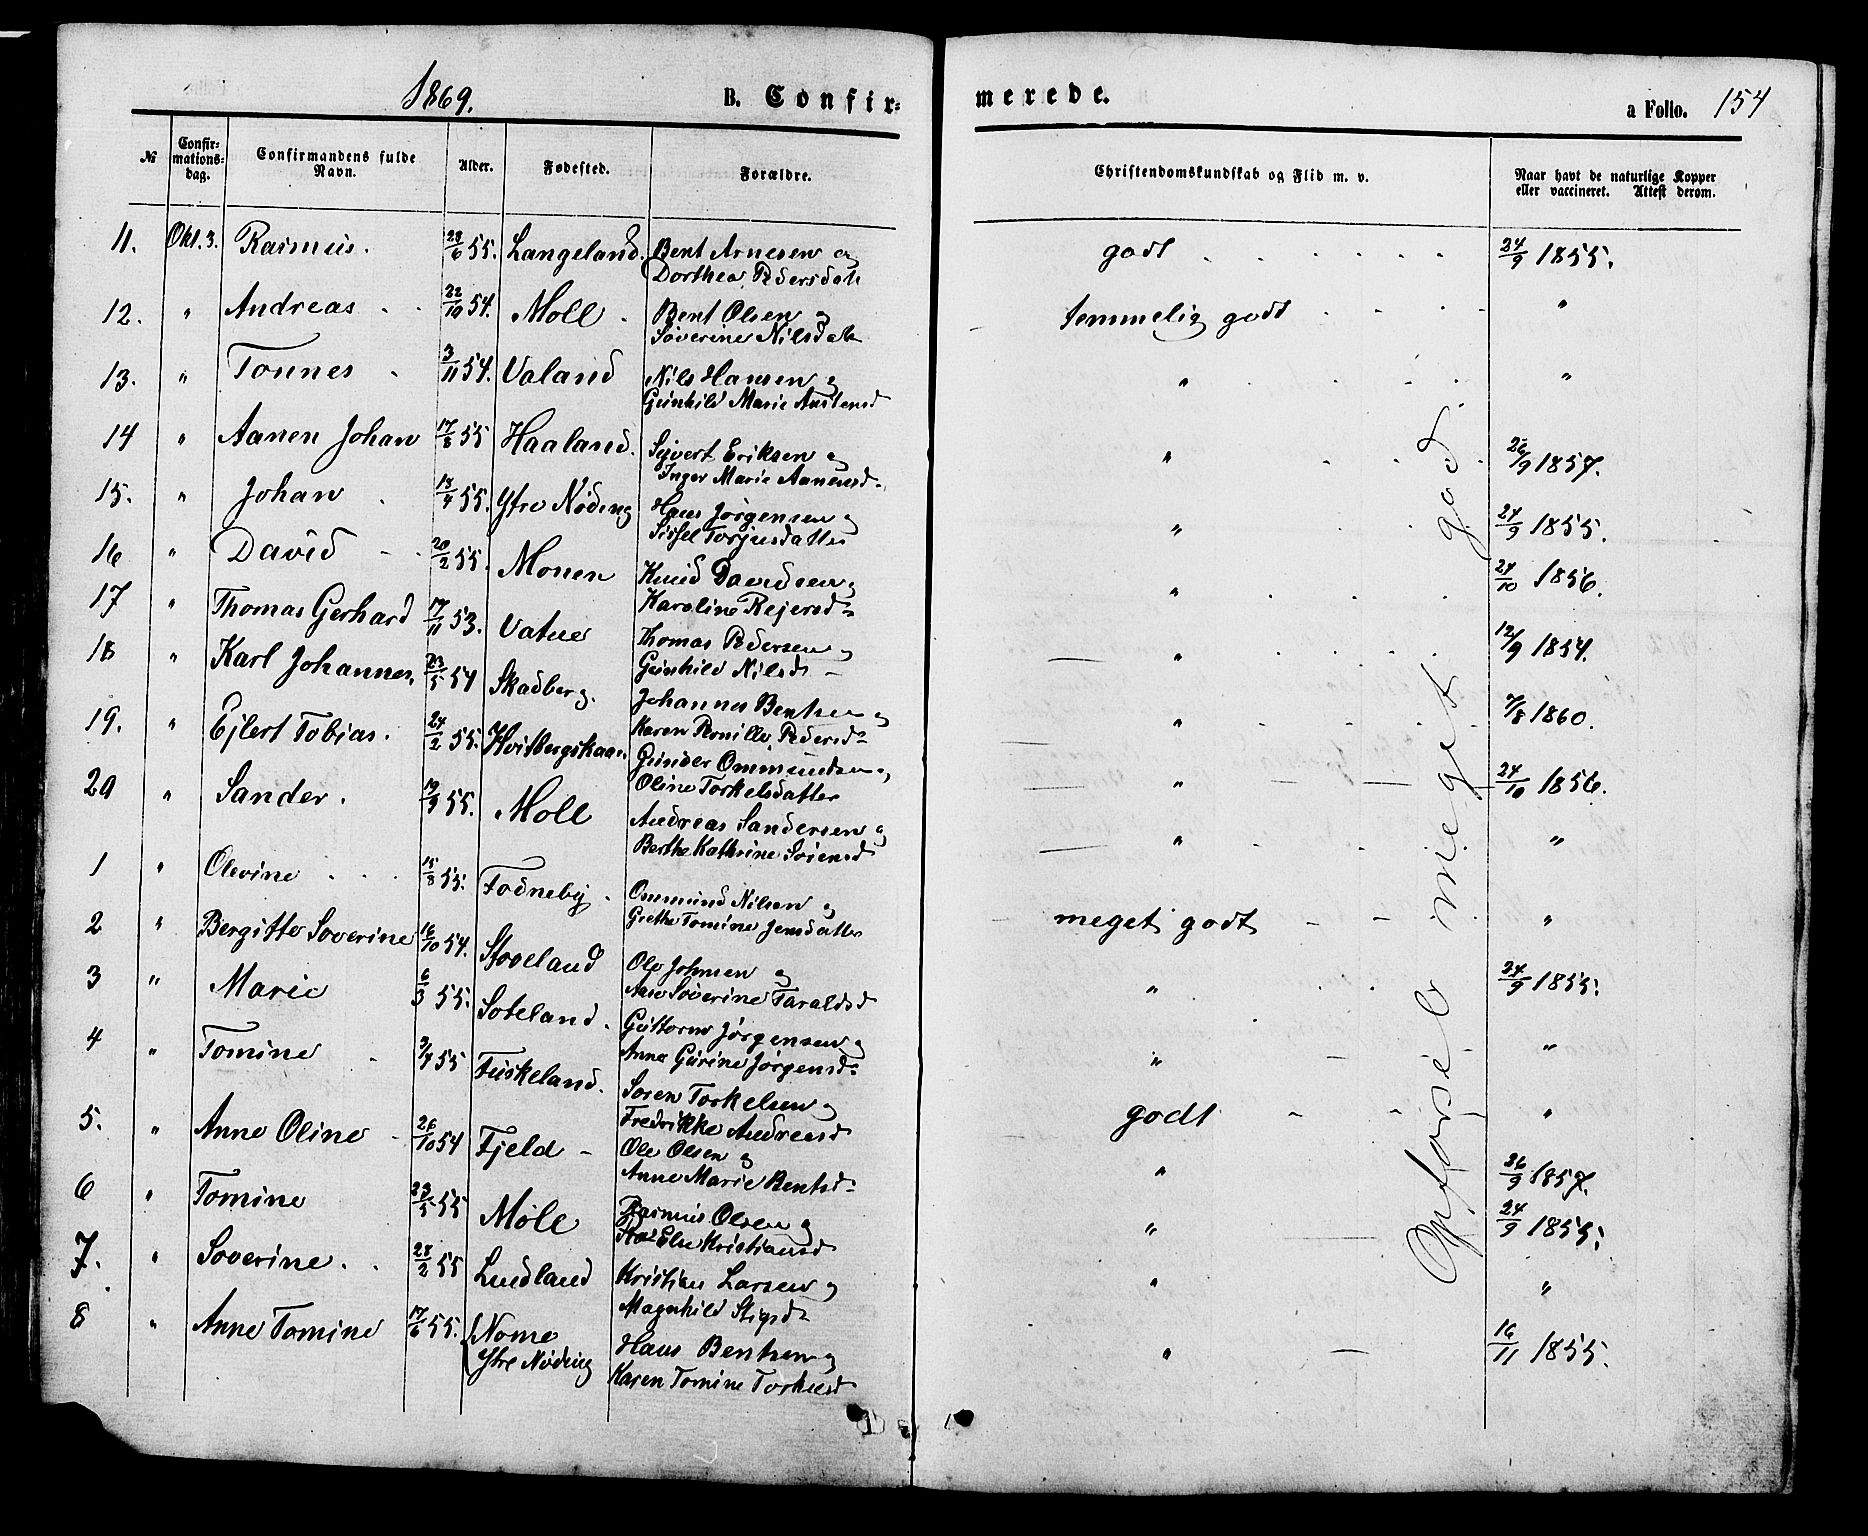 1869.
B. Confir-
merede.
a Folio. 154
№
Confir-
mations-
dag.
Confirmandens fulde
Navn.
Alder.
Fødested.
Forældre.
Christendomskundskab og Flid m. v.
Naar havt de naturlige Kopper
eller vaccineret. Attest derom.
11. Okt. 3. Rasmus. 28/6 55. Langeland. Bent Arnesen og godt 24/9 1855.
Dorthea Pedersdatr
12. " Andreas 22/10 54. Moll Bent Olsen og temmelig godt "
Soverine Nilsdatr
13. " Tonnes 3/11 54. Valand Nils Hansen og " "
Gunhild Marie Austensd
14 " Aanen Johan 17/8 55 Haaland. Sijvert Eriksen og " 26/9 1857.
Inger Marie Aanensd
15. " Johan 18/4 55. Ytre Nøding Hans Jørgensen og " 24/9 1855.
Sissel Torjusdatter
16 " David 20/2 55. Monen Knud Davidsen og " 24/10 1856.
Karoline Rejersd
17 " Thomas Gerhard 17/11 53. Vatne Thomas Pedersen og " 12/9 1854.
Gunhild Nilsd
18 " Karl Johannes. 23/5 54 Skadberg. Johannes Bentsen og " 7/8 1860.
Karen Pernille Pedersd
19. " Ejlert Tobias. 24/2 55. Hvitbergskaar. Gunder Ommundsen og " 24/10 1856.
Oline Torkelsdatter
20 " Sander. 19/9 55. Moll Andreas Sandersen og " "
Berthe Kathrine Sørensd
1 " Olevine 15/8 55. Fodneby. Ommund Nilsen og meget godt "
Grethe Tomine Jensdatter
2 " Bergitte Soverine 16/10 54. Stoveland Ole Johnsen og " 24/9 1855.
Ane Soverine Taraldsd
3 " Marie 6/3 55. Soteland. Guttorm Jørgensen og " "
Anne Gurine Jørgensd
4 " Tomine 3/4 55 Fuskeland. Soren Torkelsen og godt "
Fredrikke Andreasd
5. " Anne Oline 26/10 54 Fjeld Ole Olsen og " 26/9 1857.
Anne Marie Bentsd
6 " Tomine 23/5 55 Moll Rasmus Olsen og " 24/9 1855.
Else Kristiansd
7. " Soverine. 28/2 55 Lindland Kristian Larsen og " "
Magnhild Stigsd
8 " Anne Tomine 17/6 55. Nome Hans Bentsen og " 16/11 1855.
Ytre Nøding Karen Tomine Torkelsd
Opførsel meget god.